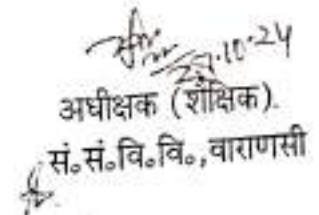 27.10.24
अधीक्षक (शैक्षिक).
सं०सं०वि०वि०,वाराणसी